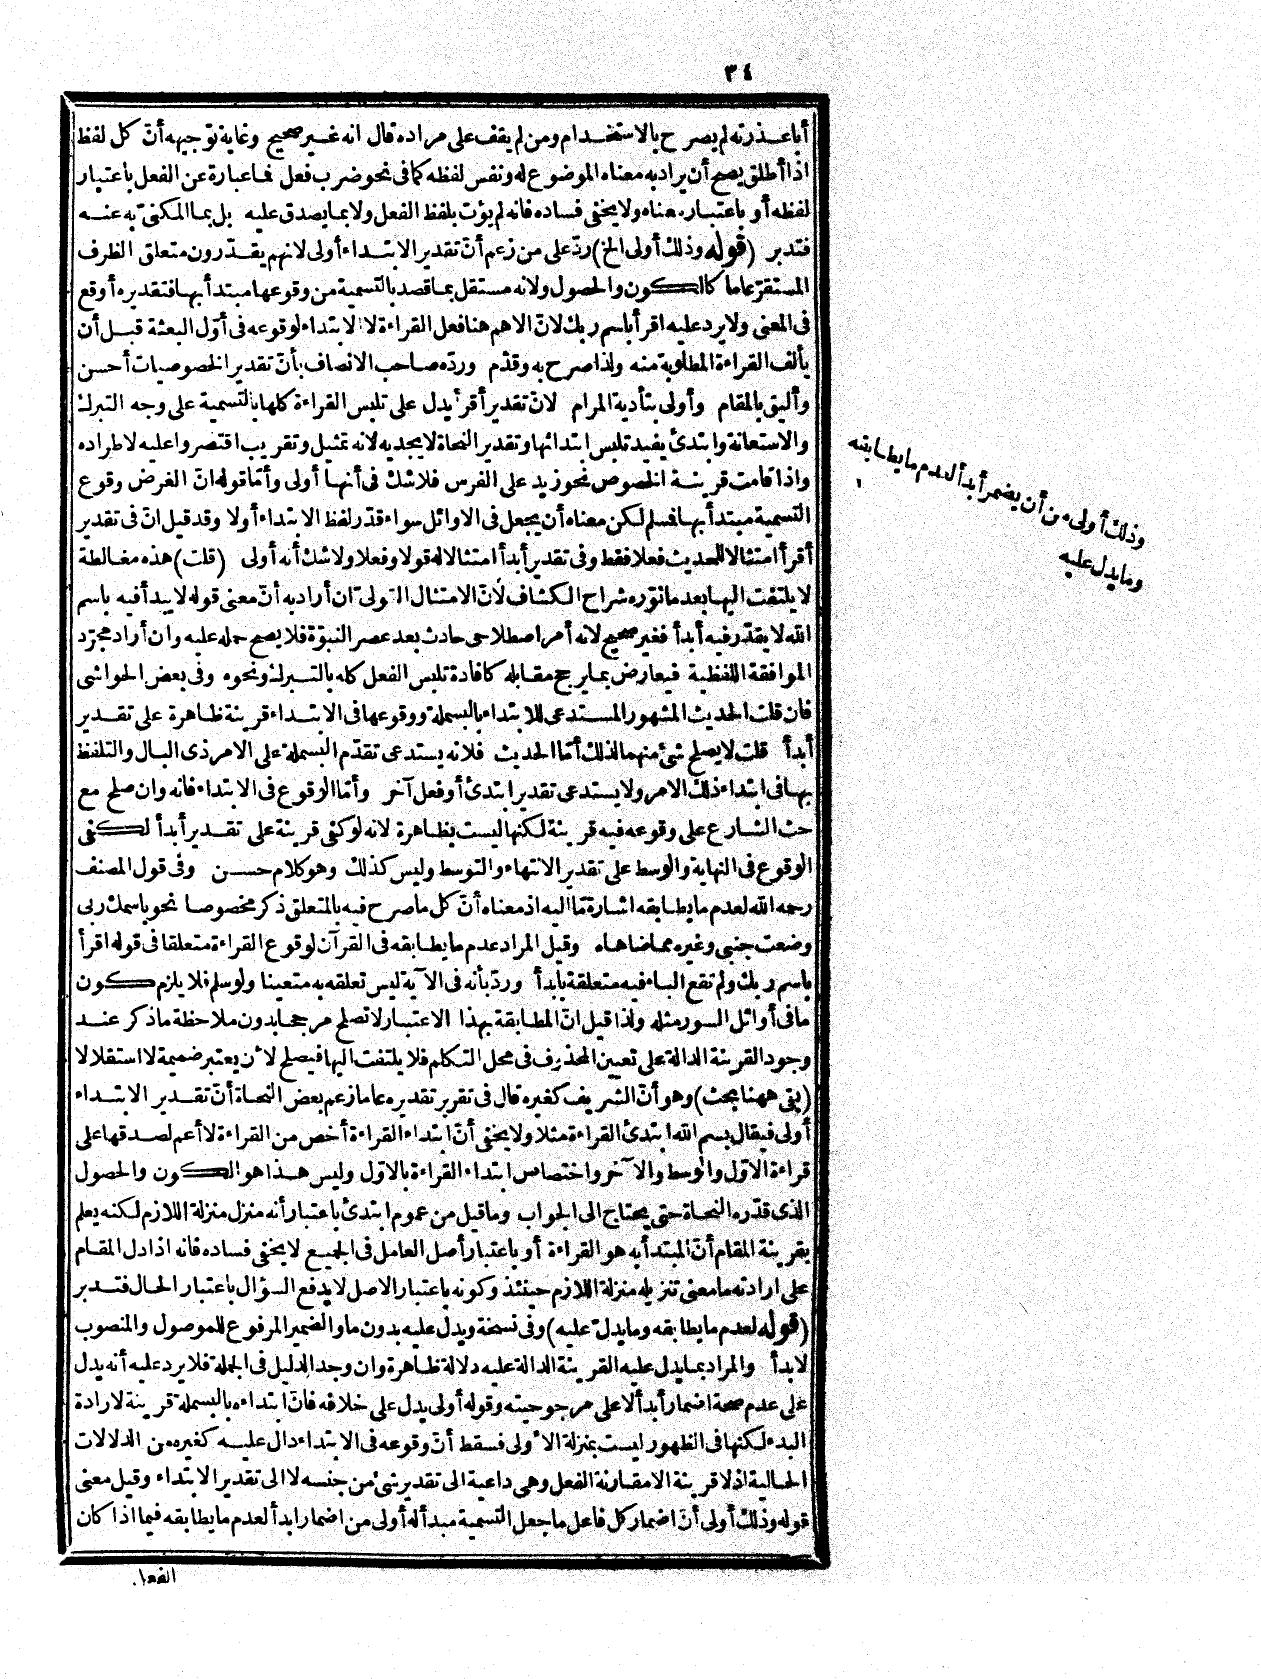 ٣٤
أباعذرته لم يصرح بالاستخدام ومن لم يقف على مراده قال انه غير صحيح وغاية توجيهه أنّ كل لفظ
اذا أطلق يصح أن يراد به معناه الموضوع له ونفس لفظه كما في نحو ضرب فعل فما عبارة عن الفعل باعتبار
لفظه أو باعتبار معناه ولا يخفى فساده فانه لم يؤت بلفظ الفعل ولا بما يصدق عليه بل بما المكنىّ به عنه
فتدبر (قوله وذلك أولى الخ) ردّ على من زعم أنّ تقدير الابتداء أولى لانهم يقدّرون متعلق الظرف
المستقرّ عاما كالكون والحصول ولانه مستقل بما قصد بالتسمية من وقوعها مبتدأ بها فتقديره أوقع
في المعنى ولا يرد عليه اقرأ باسم ربك لانّ الاهم هنا فعل القراءة لا الابتداء لوقوعه في أوّل البعثة قبل أن
يألف القراءة المطلوبة منه ولذا صرح به وقدّم وردّه صاحب الانصاف بأنّ تقدير الخصوصيات أحسن
وأليق بالمقام وأولى بتأدية المرام لانّ تقدير أقرأ يدل على تلبس القراءة كلها بالتسمية على وجه التبرك
والاستعانة وابتدئ يفيد تلبس ابتدائها وتقدير النحاة لا يجديه لانه تمثيل وتقريب اقتصروا عليه لاطراده
واذا قامت قرينة الخصوص نحو زيد على الفرس فلا شك في أنها أولى وأمّا قوله انّ الغرض وقوع
التسمية مبتدأ بها فسلم لكن معناه أن يجعل في الاوائل سواء قدّر لفظ الابتداء أولا وقد قيل انّ في تقدير
أقرأ امتثالا للحديث فعلا فقط وفي تقدير أبدأ امتثالا له قولا وفعلا ولا شك أنه أولى (قلت) هذه مغالطة
لا يلتفت اليها بعد ما نوّره شراح الكشاف لأنّ الامتثال القولىّ ان أراد به أنّ معنى قوله لا يبدأ فيه باسم
الله لا يقدّر فيه أبدأ فغير صحيح لانه أمر اصطلاحى حادث بعد عصر النبوّة فلا يصح حمله عليه وان أراد مجرّد
الموافقة اللفظية فيعارض بما يرجح مقابله كافادة تلبس الفعل كله بالتبرك ونحوه وفي بعض الحواشى
فان قلت الحديث المشهور المستدعى للابتداء بالبسملة ووقوعها في الابتداء قرينة ظاهرة على تقدير
أبدأ قلت لا يصلح شئ منهما لذلك أمّا الحديث فلانه يستدعى تقدّم البسملة على الامر ذى البال والتلفظ
بها في ابتداء ذلك الامر ولا يستدعى تقدير ابتدئ أو فعل آخر وأمّا الوقوع في الابتداء فانه وان صلح مع
حث الشارع على وقوعه فيه قرينة لكنها ليست بظاهرة لانه لو كفى قرينة على تقدير أبدأ لكفى
الوقوع في النهاية والوسط على تقدير الانتهاء والتوسط وليس كذلك وهو كلام حسن وفي قول المصنف
رحمه الله لعدم ما يطابقه اشارة مّا اليه اذ معناه أنّ كل ما صرح فيه بالمتعلق ذكر مخصوصا نحو باسمك ربى
وضعت جنبى وغيره مما ضاهاه وقيل المراد عدم ما يطابقه في القرآن لوقوع القراءة متعلقا في قوله اقرأ
باسم ربك ولم تقع الباء فيه متعلقة بابدأ وردّ بأنه في الآية ليس تعلقه به متعينا ولو سلم فلا يلزم كون
ما في أوائل السور مثله ولذا قيل انّ المطابقة بهذا الاعتبار لا تصلح مرجحا بدون ملاحظة ما ذكر عند
وجود القرينة الدالة على تعيين المحذوف في محل التكلم فلا يلتفت اليها فيصلح لأن يعتبر ضميمة لا استقلالا
(بقى ههنا بحث) وهو أنّ الشريف كغيره قال في تقرير تقديره عاما زعم بعض النحاة أنّ تقدير الابتداء
أولى فيقال بسم الله ابتدئ القراءة مثلا ولا يخفى أنّ ابتداء القراءة أخص من القراءة لا أعم لصدقها على
قراءة الاوّل والوسط والآخر واختصاص ابتداء القراءة بالاوّل وليس هذا هو الكون والحصول
الذى قدّره النحاة حتى يحتاج الى الجواب وما قيل من عموم ابتدئ باعتبار أنه منزل منزلة اللازم لكنه يعلم
بقرينة المقام أنّ المبتدأ به هو القراءة أو باعتبار أصل العامل في الجميع لا يخفى فساده فانه اذا دل المقام
على ارادته ما معنى تنزيله منزلة اللازم حينئذ وكونه باعتبار الاصل لا يدفع السؤال باعتبار الحال فتدبر
(قوله لعدم ما يطابقه وما يدلّ عليه) وفي نسخة ويدل عليه بدون ما والضمير المرفوع للموصول والمنصوب
لابدأ والمراد بما يدل عليه القرينة الدالة عليه دلالة ظاهرة وان وجد الدليل في الجملة فلا يرد عليه أنه يدل
على عدم صحة اضمار أبدأ لا على مرجوحيته وقوله أولى يدل على خلافه فانّ ابتداءه بالبسملة قرينة لارادة
البدء لكنها في الظهور ليست بمنزلة الأولى فسقط أنّ وقوعه في الابتداء دال عليه كغيره من الدلالات
الحالية اذ لا قرينة الا مقارنة الفعل وهى داعية الى تقدير شئ من جنسه لا الى تقدير الابتداء وقيل معنى
قوله وذلك أولى أنّ اضمار كل فاعل ما جعل التسمية مبدأ له أولى من اضمار ابدأ لعدم ما يطابقه فيما اذا كان
الفعل
وذلك أولى من أن يضمر أبدأ لعدم ما يطابقه
وما يدل عليه